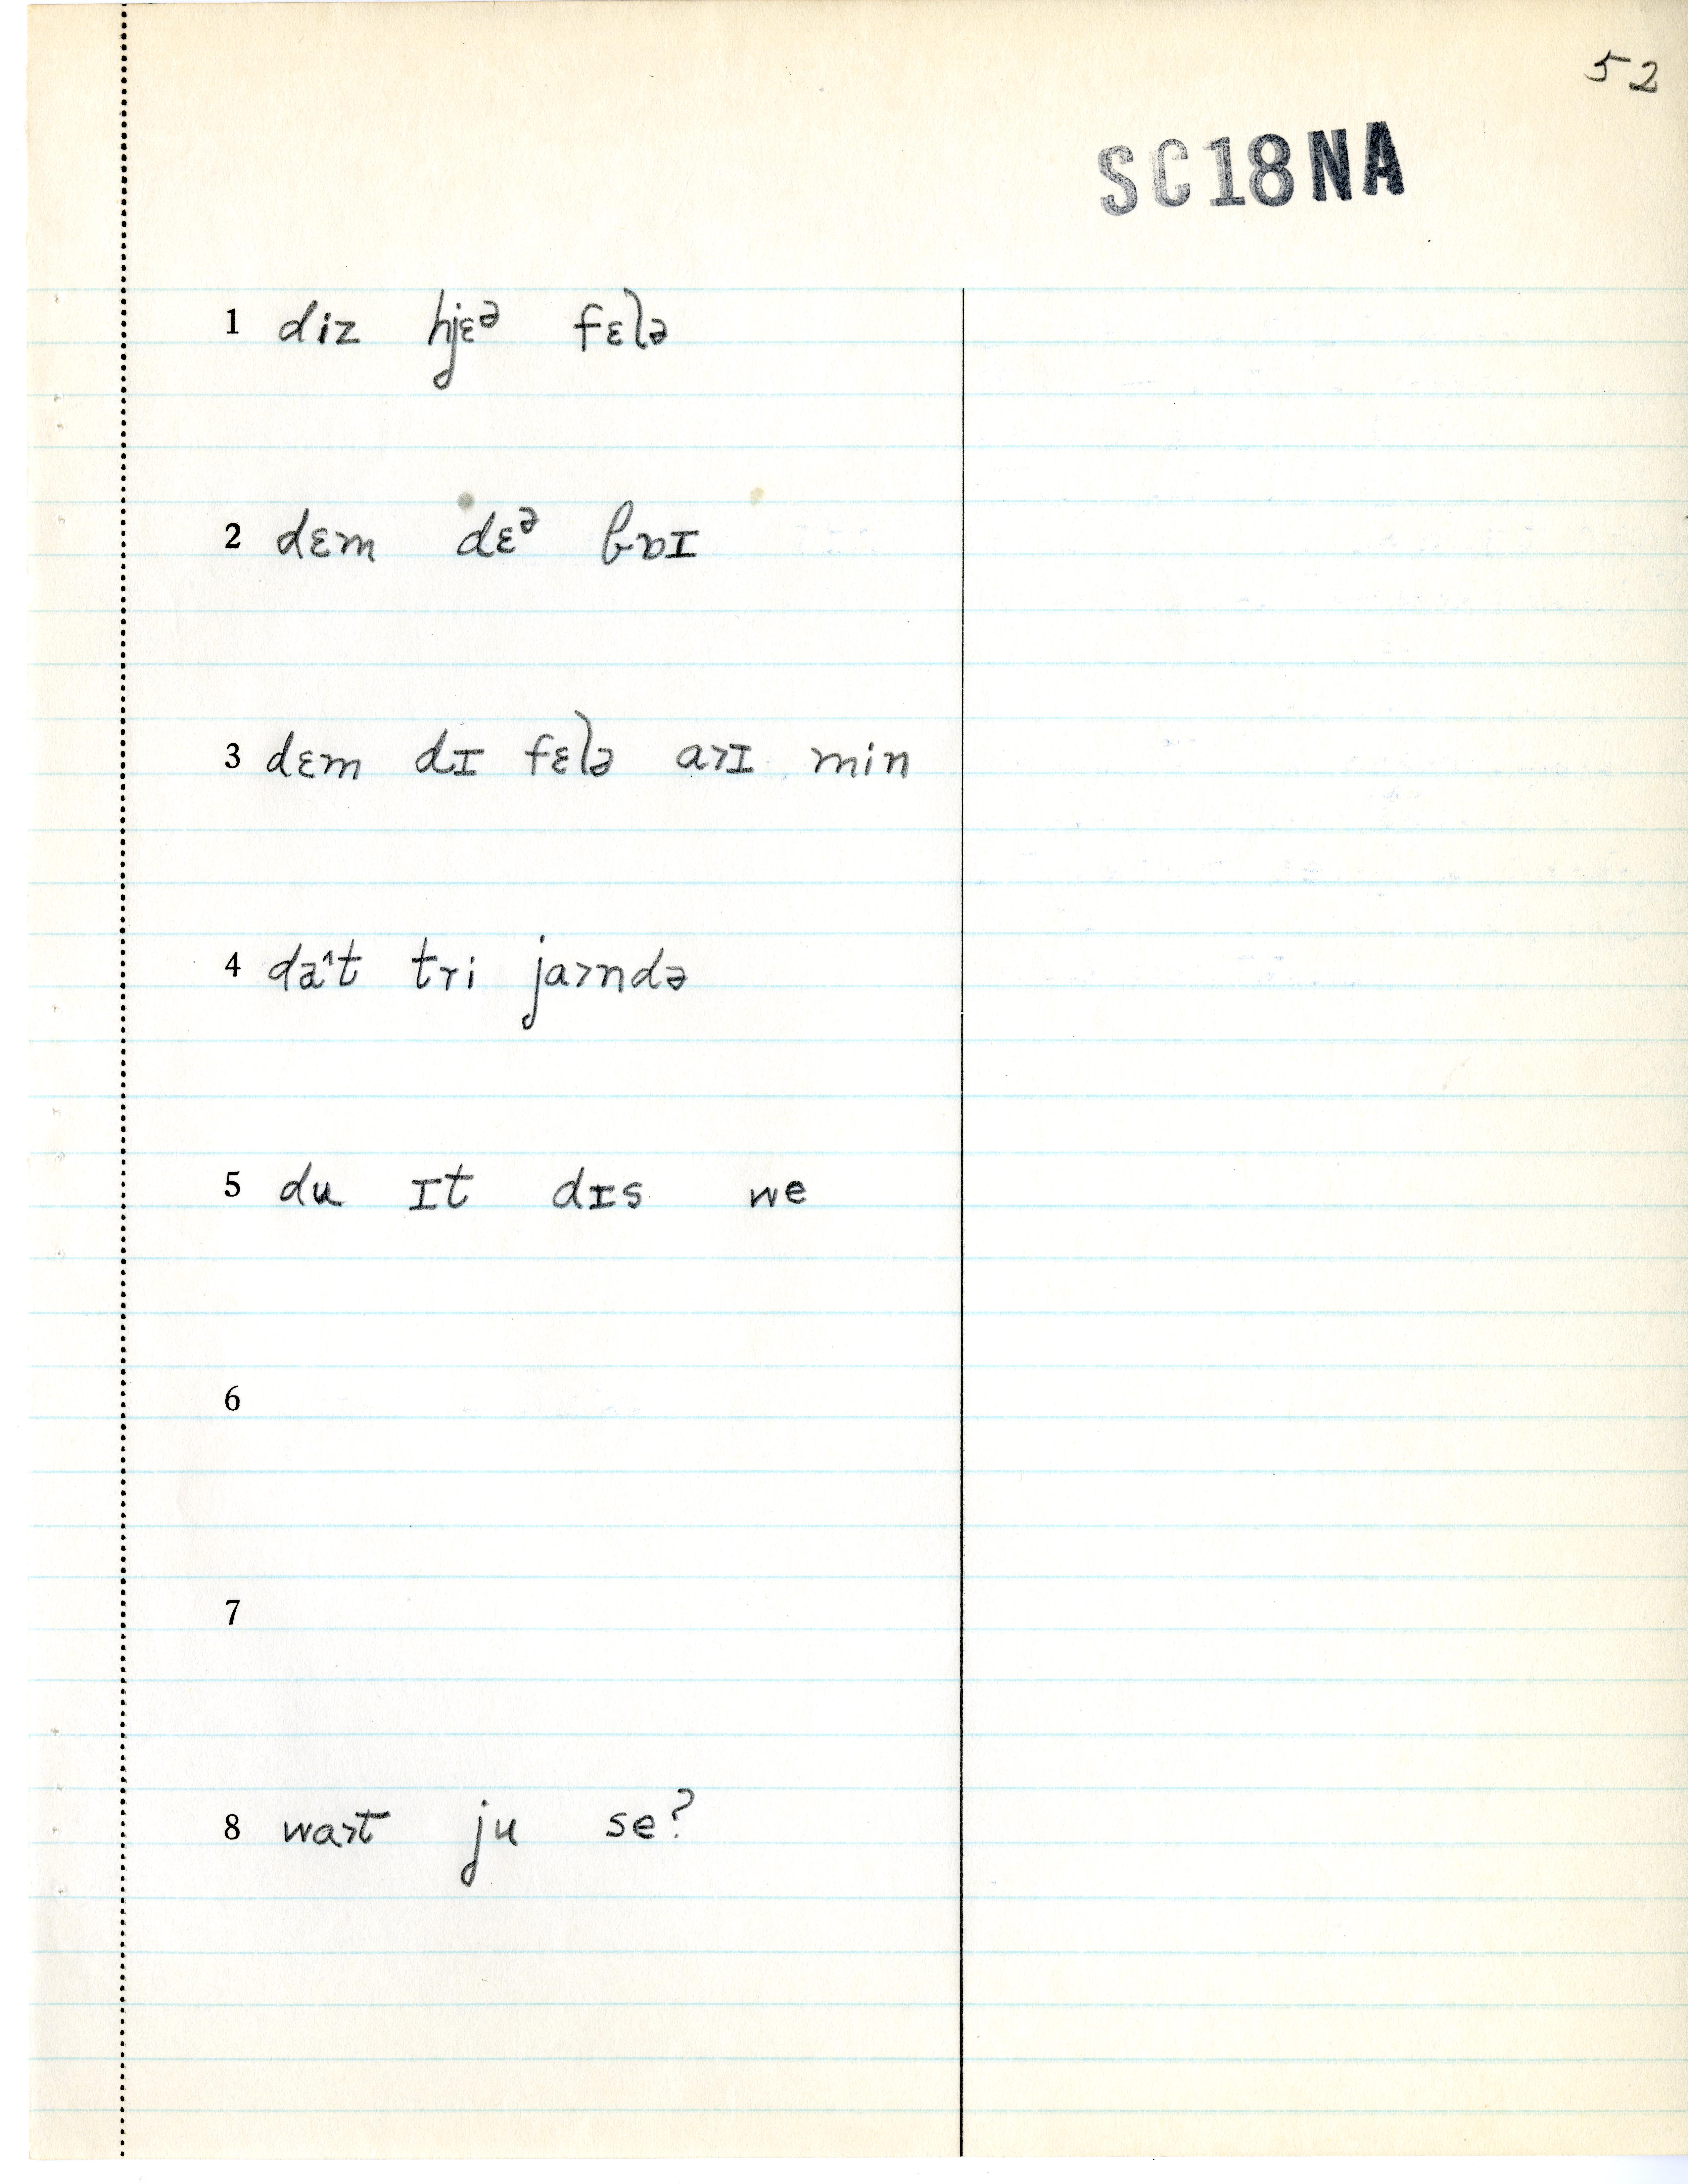 52
SC18NA
1 diz hjɛᵊ fɛlə
2 dɛm dɛᵊ bɒɪ
3 dɛm dɪ fɛlə a˃ɪ min
4 da^t tri ja˃ndə
5 du ɪt dɪs we
6
7
8 wa˃t ju se?